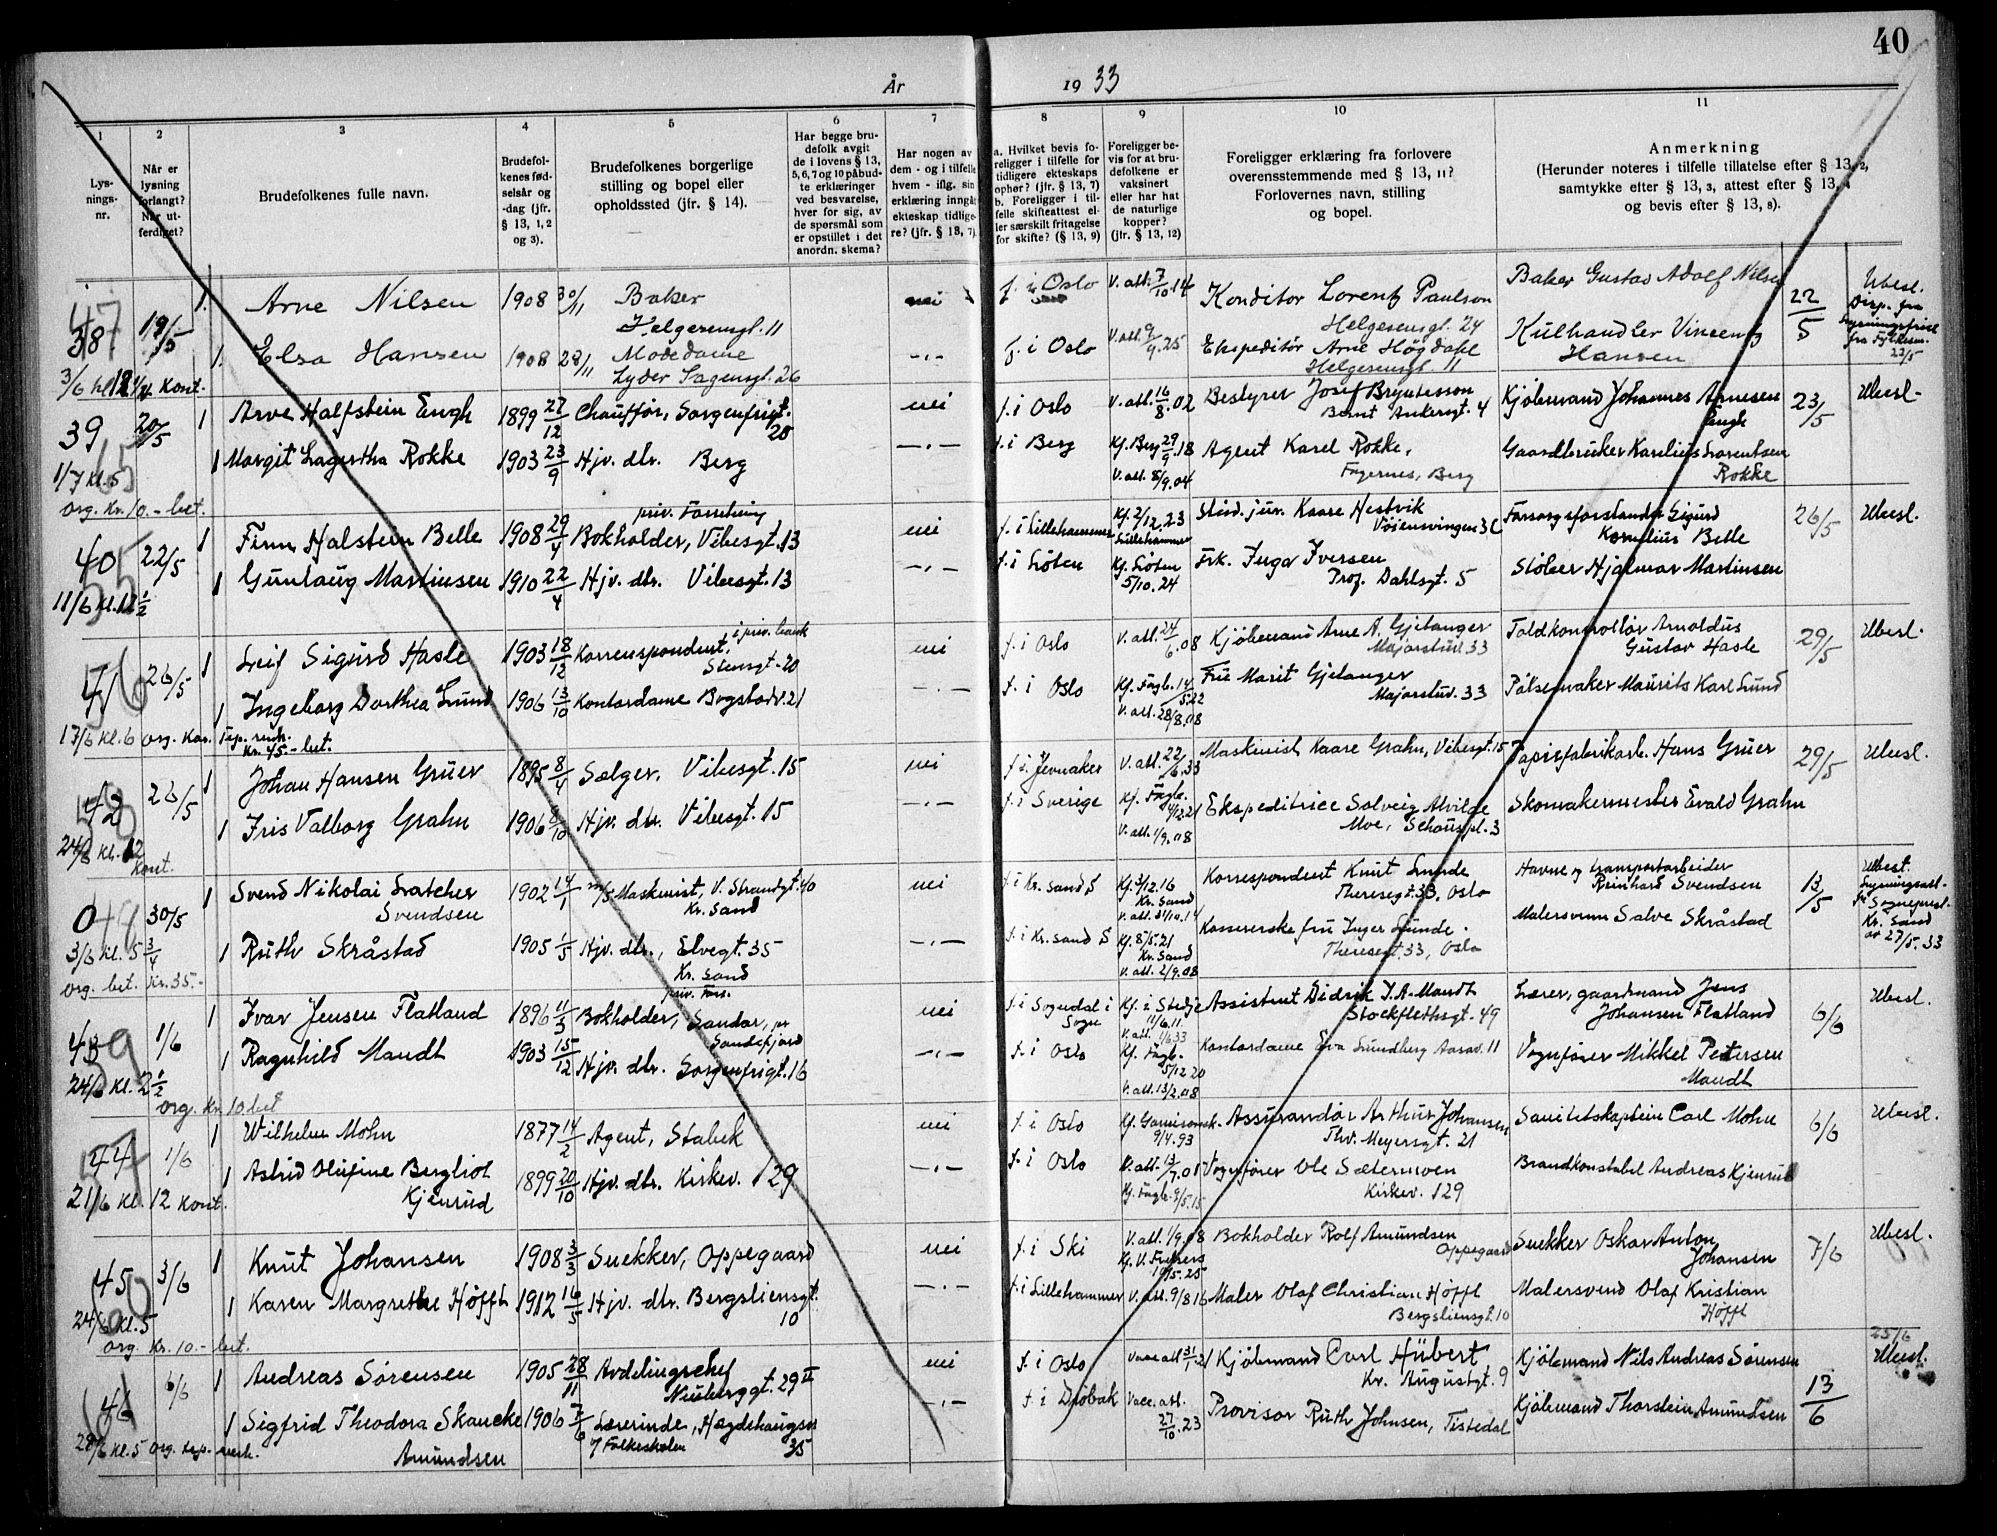 40
År 1933
1 2 3 4 5 6 7 8 9 10 11
Lys-
nings-
nr.
Når er
lysning
forlangt?
Når ut-
ferdiget?
Brudefolkenes fulle navn.
Brudefol-
kenes fød-
selsår og
-dag (jfr.
§ 13, 1, 2
og 3).
Brudefolkenes borgerlige
stilling og bopel eller
opholdssted (jfr. § 14).
Har begge bru-
defolk avgit
de i lovens § 13,
5, 6, 7 og 10 påbud-
te erklæringer
ved besvarelse,
hver for sig, av
de spørsmål som
er opstillet i det
anordn. skema?
Har nogen av
dem - og i tilfelle
hvem - iflg. sin
erklæring inngått
ekteskap tidlige-
re? (jfr. § 13, 7).
a. Hvilket bevis fo-
religger i tilfelle for
tidligere ekteskaps
ophør? (jfr. § 13, 7)
b. Foreligger i til-
felle skifteattest el-
ler særskilt fritagelse
for skifte? (§ 13, 9)
Foreligger be-
vis for at bru-
defolkene er
vaksinert
eller har hat
de naturlige
kopper?
(jfr. § 13, 12)
Foreligger erklæring fra forlovere
overensstemmende med § 13, 11?
Forlovernes navn, stilling
og bopel.
Anmerkning
(Herunder noteres i tilfelle tillatelse efter § 13, 2,
samtykke efter § 13, 3, attest efter § 13, 4
og bevis efter § 13, 8).
38 19/5 1. Arne Nilsen 1908 30/11 Baker nei f. i Oslo V. att. 7/10.14 Konditor Lorentz Paulson Baker Gustav Adolf Nilsen 22/5 Ubesl.
Helgesensgt. 11 Helgesensgt. 24 Disp. fra
1. Elsa Hansen 1908 28/11 Modedame -"- f. i Oslo V. att. 9/9.25 Ekspeditör Arne Högdahl Kulhandler Vincentz
Lyder Sagensgt. 26 Helgesensgt 11 Hansen
39 20/5 1 Arve Halfstein Engh 1899 27/12 Chaufför, Sorgenfrigt. nei f. i Oslo V. att. 16/8.02 Bestyrer Josef Bryntesson Kjöbmand Johannes Arnesen 23/5 Ubesl.
Bernt Ankersgt. 4 Engh
1 Margit Lagertha Rokke 1903 23/9 Hjv. dtr. Berg -"- f. i Berg Kf. Berg 29/9.18 Agent Karel Rokke, Gaardbruker Karelius Lorentsen
1/7 kl. 5 V. att. 8/9.04 Fagernes, Berg Rokke
org. Kr. 10.- bet.
priv. Forretning
40 22/5 1 Finn Halstein Belle 1908 29/4 Bokholder, Vibesgt. 13 nei f. i Lillehammer Kf. 2/12.23 Stud. jur. Kaare Hestvik Forsorgsforstander Sigurd 26/5 Ubesl.
Lillehammer Vöiensvingen 3 C Kornelius Belle
1 Gunlaug Martinsen 1910 22/4 Hjv. dtr. Vibesgt. 13 -"- f. i Löten Kf. Löten Frk. Inga Iversen Stöber Hjalmar Martinsen
11/6 kl. 12 1/2 5/10.24 Prof. Dahlsgt. 5
i priv. bank
41 26/5 1 Leif Sigurd Hasle 1903 18/12 Korrespondent, nei f. i Oslo V. att. 24/6.08 Kjöbmand Arne A. Gjelanger Toldkontrollör Arnoldus 29/5 Ubesl.
Stensgt. 20 Majorstuv. 33 Gustav Hasle
1 Ingeborg Dorthea Lund 1906 13/10 Kontordame Bogstadv. 21 -"- f. i Oslo Kf. Fagb. 14/5.22 Frü Marit Gjelanger Pölsemaker Maurits Karl Lund
V. att. 28/8.08 Majorstuv. 33
17/6 kl. 6 org. Kor.
Kr. 45.- bet.
42 26/5 1 Johan Hansen Grüer 1895 8/4 Sælger, Vibesgt. 15 nei f. i Jevnaker V. att. 22/6.33 Maskinist Kaare Grahn, Vibesgt. 15 Papirfabrikarb. Hans Grüer 29/5 Ubesl.
1 Iris Valborg Grahn 1906 Hjv. dtr. Vibesgt. 15 -"- f. i Sverige Kf. Fagb. 4/12.21 Ekspeditrice Solveig Alvilde Skomakermester Evald Grahn
24/6 kl. 12 V. att. 1/9.08 Moe, Schouspl. 3
kont.
0 30/5 1 Svend Nikolai 1902 14/1 m/s Maskinist, V. Strandgt. 40 nei f. i Kr. sand S Kf. 3/12.16 Korrespondent Knut Lunde Havne og transportarbeider 13/5 Ubesl.
Svendsen Kr. Sand Kr. Sand Theresegt. 33, Oslo Reinhard Svendsen
V. att. 31/10.14
1 Ruth Skråstad 1905 1/5 Hjv. dtr., Elvegt. 35 -"- f. i Kr. sand S Kf. 8/5.21 Kassererske frü Inger Lunde. Malersvenn Salve Skråstad
3/6 kl. 5 3/4 Kr. Sand Kr. Sand Theresegt 33, Oslo av 27/5.33
org. bet. Kr. 35.- V. att. 2/9.08
priv. Forr.
43 1/6 1 Ivar Jensen Flatland 1896 11/3 Bokholder, Sandar, pr nei f. i Sogndal i Kf. i Stedje Assistent Didrik I. A. Mandt Lærer, gaardmand Jens 6/6 Ubesl.
Sandefjord Sogn 11/6.11 Stockflethsgt. 49 Johansen Flatland
1 Ragnhild Mandt 1903 15/12 Hjv. dtr. Sorgenfrigt. 16 -"- f. i Oslo Kf. Fagb. Kontordame Eva Lundberg Aasav. 11 Vognförer Mikkel Petersen
24/6 kl. 2 1/2 5/12 20 Mandt
org. Kr. 10 bet V. att. 13/2.08
44 1/6 1 Wilhelm Mohn 1877 14/2 Agent, Stabek nei f. i Oslo Kf. Garnisonsk. Assurandör Arthur Johansen Sanitetskaptein Carl Mohn 6/6 Ubesl.
9/4.93 Thv. Meyersgt. 21
1 Astrid Olufine Bergliot 1899 20/10 Hjv. dtr. Kirkev. 129 -"- f. i Oslo V. att. 13/7.01 Vognförer Ole Sætermoen Brandkonstabel Andreas Kjenrud
21/6 kl. 12 kont. Kjenrud Kf. Fagb. 9/5.15 Kirkev. 129
45 3/6 1 Knut Johansen 1908 3/3 Snekker, Oppegaard nei f. i Ski V. att. 1/9.08 Bokholder Rolf Amundsen Snekker Oskar Anton 7/6 Ubesl.
Oppegaard Johansen
1 Karen Margrethe Höfft 1912 16/5 Hjv. dtr. Bergsliensgt. -"- f. i Lillehammer V. att. 9/8 16 Maler Olaf Christian Höfft Malersvend Olaf Kristian
24/6 kl. 5 10 Bergsliensgt. 10 Höfft
org. Kr. 10.- bet.
46 6/6 1 Andreas Sörensen 1905 28/11 Avdelingschef nei f. i Oslo Vacc att 31/1.21 Kjöbmand Carl Hübert Kjöbmand Nils Andreas Sörensen 13/6 25/6 Ubesl.
Niuberggt. 29 II Kr. Augustgt. 9
1 Sigfrid Theodora Skancke 1906 7/6 Lærerinde, Hegdehaugsv. -"- f. i Dröbak Vacc. att. 27/10.23 Provisor Ruth Johnsen, Tistedal Kjöbmand Thorstein Amundsen
Amundsen Folkeskolen 35